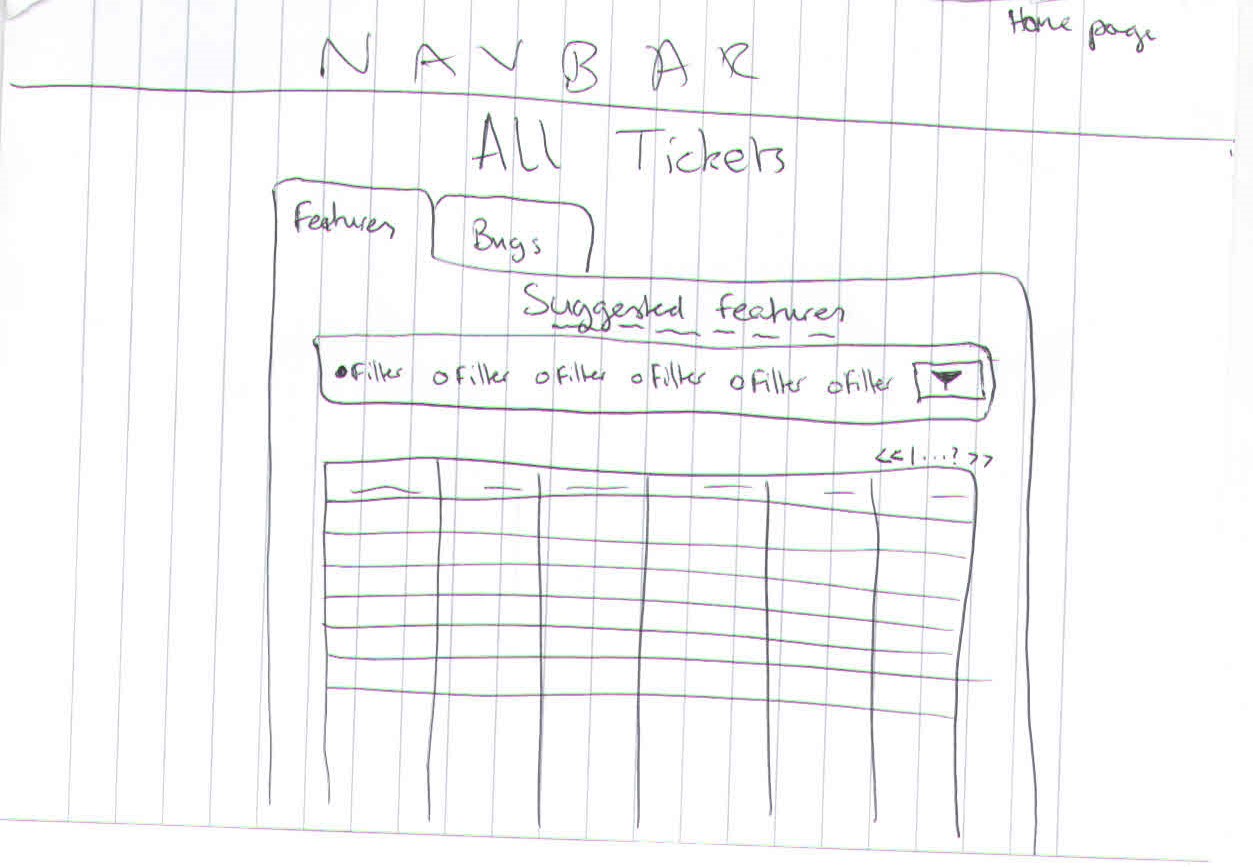 Home page
NAVBAR
All Tickets
Features
Bugs
Suggested features
Filter Filter Filter Filter Filter Filter
<<1...?>>